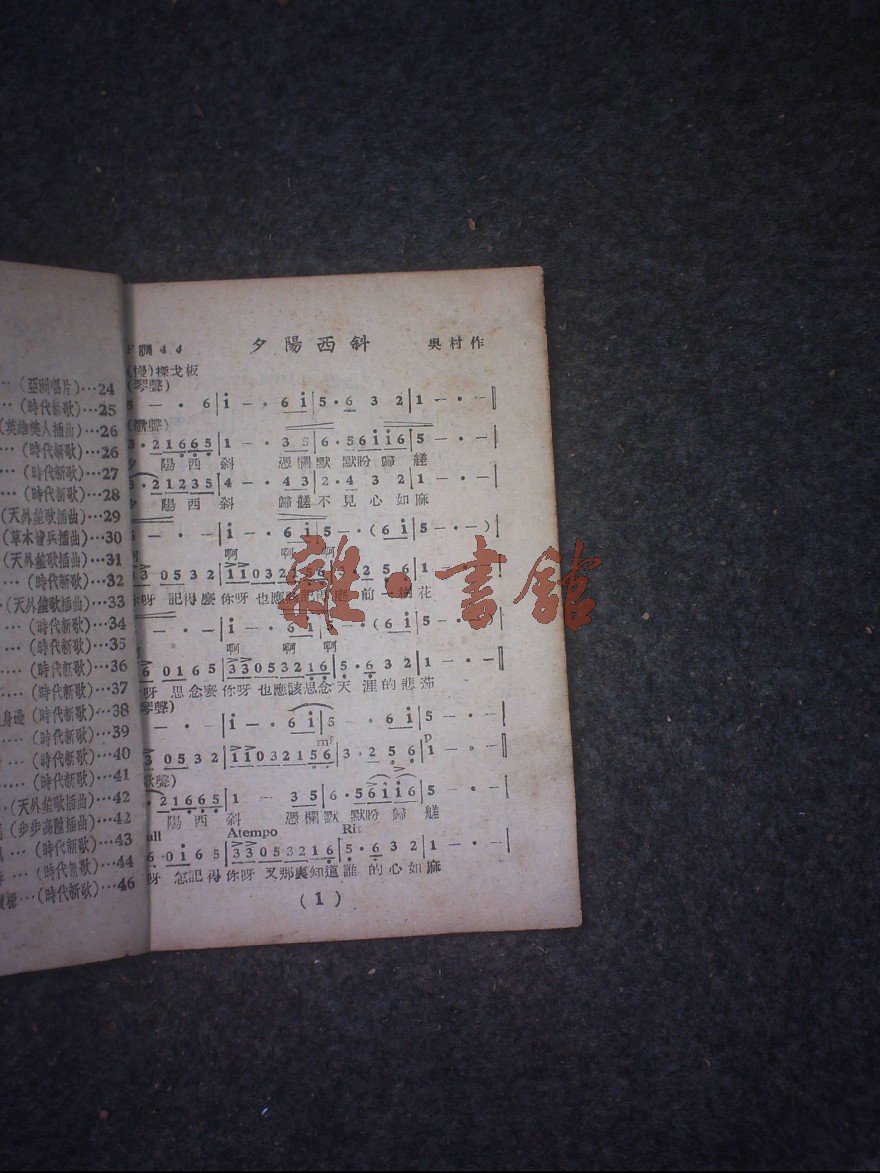 (亞爾唱片)…24
(時代新歌)…25
(英雄美人插曲)…26
(時代新歌)…26
(時代新歌)…27
(時代新歌)…28
(天外笙歌插曲)…29
(草木皆兵插曲)…30
(天外笙歌插曲)…31
(時代新歌)…32
(天外笙歌插曲)…33
(時代新歌)…34
(時代新歌)…35
(時代新歌)…36
(時代新歌)…37
身邊(時代新歌)…38
(時代新歌)…39
(時代新歌)…40
(時代新歌)…41
(天外笙歌插曲)…42
(步步高陞插曲)…42
(時代新歌)…43
(時代新歌)…44
(時代新歌)…46
調 4 4 夕陽西斜 吳村作
(慢)探戈板
(琴聲)
— · 6 | i — · 6 i | 5 · 6 3 2 | 1 — · — ‖
(歌聲)
3 · 2 1 6 6 5 | 1 — · 3 5 | 6 · 5 6 i i 6 | 5 — · — |
夕 陽西斜 憑欄默默盼歸艖
3 · 2 1 2 3 5 | 4 — · 4 3 | 2 · 4 3 2 | 1 — · — |
夕 陽西斜 歸艖不見心如麻
— · — | i — · 6 i | 5 — · (6 i | 5 — · —)
啊 啊 啊
1 3 0 5 3 2 | 1 1 0 3 2 · 2 5 6 | 1 — ·
呀 記得麼你呀也應該記 庭前一 花
· — | i — · 6 i | 5 — · 6 i | 5 — · — |
啊 啊 啊
6 0 1 6 5 | 3 3 0 5 3 2 1 6 | 5 · 6 3 2 | 1 — · — ‖
呀 思念麼你呀也應該思念天涯的悲茄
(琴聲)
· — | i — · 6 i | 5 — · 6 i | 5 — · — |
mf p
3 0 5 3 2 | 1 1 0 3 2 1 5 6 | 3 · 2 5 6 | 1 — · — ‖
(歌聲)
· 2 1 6 6 5 | 1 — 3 5 | 6 · 5 6 i i 6 | 5 — · — |
陽西斜 憑欄默默盼歸艖
all Atempo Rit
6 · 0 i 6 5 | 3 3 0 5 3 2 1 6 | 5 · 6 3 2 | 1 — · — ‖
呀 怎記得你呀又那裏知道誰的心如麻
(1)
雜·書館